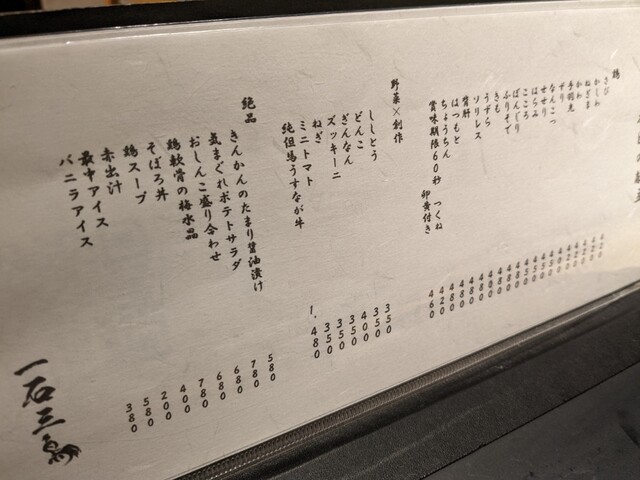 鶏
さび
かしわ
ねぎま
かわ
手羽先
ずり
なんこつ
せせり
はらみ
こころ
ぼんじり
ふりそで
きも
うずら
ソリレス
背肝
はつもと 480
ちょうちん 420
賞味期限60秒 つくね 卵黄付き 460
野菜×創作
ししとう 350
どんこ 350
ぎんなん 400
ズッキーニ 350
ねぎ 350
ミニトマト 350
純但馬うすなが牛 1,480
絶品
きんかんのたまり醤油漬け 580
気まぐれポテトサラダ 780
おしんこ盛り合わせ 680
鶏軟骨の梅水晶 680
そぼろ丼 780
鶏スープ 400
赤出汁 200
最中アイス 580
バニラアイス 380
一石三鳥